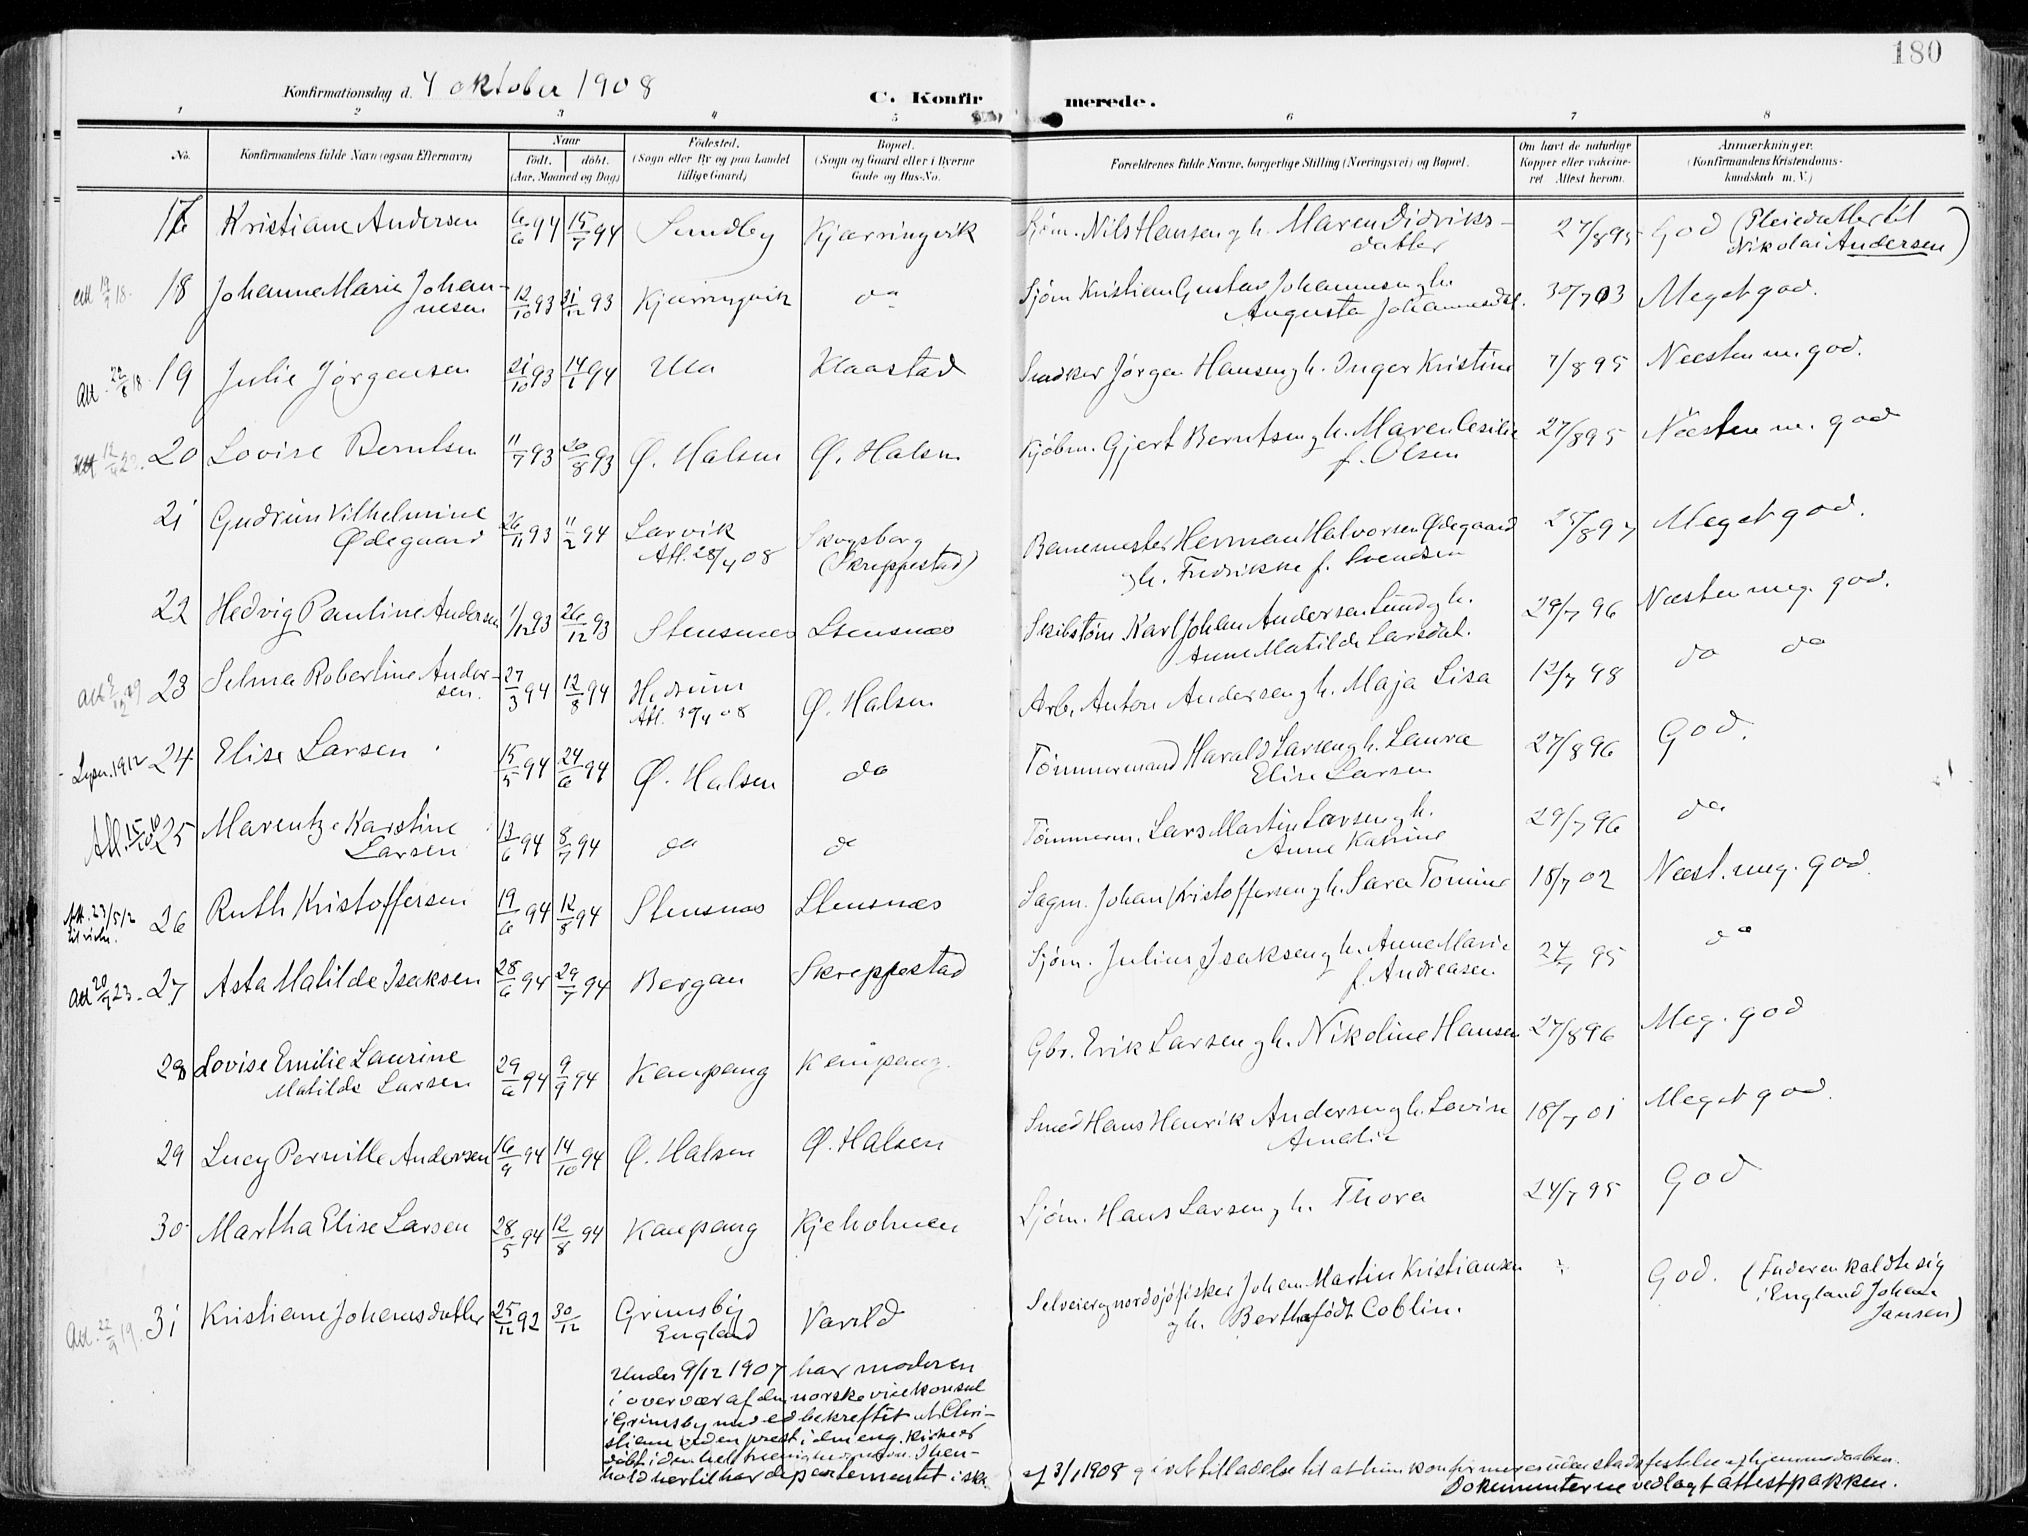 180
Konfirmationsdag d. 4 oktober 1908
C. Konfirmerede.
1 2 3 4 5 6 7 8
No. Konfirmandens fulde Navn (ogsaa Efternavn) Naar født. døbt. (Aar, Maaned og Dag) Fødested. (Sogn eller By og paa Landet tillige Gaard) Bopæl. (Sogn og Gaard eller i Byerne Gade og Hus-No. Forældrenes fulde Navne, borgerlige Stilling (Næringsvei) og Bopæl. Om havt de naturlige Kopper eller vakcineret Attest herom. Anmærkninger. (Konfirmandens Kristendomskundskab m. V.)
17 Kristiane Andersen 6/6 94 15/7 94 Sundby Kjærringvik Sjøm. Nils Hansen og h. Maren Didriks-
datter 27/8 95 God (Pleiedatter til
Nikolai Andersen)
Att 18. 18 Johanne Marie Johan-
nesen 12/10 93 31/12 93 Kjærringvik do Sjøm Kristian Gustav Johannesen og h.
Augusta Johannesdat. 30/7 03 Meget god.
Att. 22/8 18. 19 Julie Jørgensen 21/10 93 14/1 94 Ula Klaastad Snedker Jørgen Hansen og h. Inger Kristine 7/8 95 Næsten m. god.
20 Lovise Berntsen 11/7 93 20/8 93 Ø. Halsen Ø. Halsen Kjøbm. Gjert Berntsen og h. Maren Cesilie
f. Olsen 27/8 95 Næsten m. god
21 Gudrun Vilhelmine
Ødegaard 26/11 93 11/2 94 Larvik
Att. 28/4 08 Skogsborg
(Skreppestad) Banemester Herman Halvorsen Ødegaard
og h. Fredrikke f. Svendsen 25/8 97 Meget god.
22 Hedvig Pauline Andersen 1/12 93 26/12 93 Stensnes Stensnæs Skibstøm. Karl Johan Andersen Lund og h.
Anne Matilde Larsdat. 29/7 96 Næsten meg. god.
23 Selma Robertine Ander-
sen. 27/3 94 12/8 94 Hedrum
Att. 08 Ø. Halsen Arb. Anton Andersen og h. Maja Lisa 12/7 98 do do
Lysn. 1912 24 Elise Larsen 15/5 94 24/6 94 Ø. Halsen do Tømmermand Harald Larsen og h. Laura
Elise Larsen 27/8 96 God.
Att. 25 Marentze Karstine
Larsen 13/6 94 8/7 94 do do Tømmerm. Lars Martin Larsen og h.
Anne Katrine 29/7 96 do
Att. 23/5 12
til vielse. 26 Ruth Kristoffersen 19/6 94 12/8 94 Stensnæs Stensnæs Sagm. Johan Kristoffersen og h. Sara Tomine 18/7 02 Næst. meg. god
Att 20/9 23. 27 Asta Matilde Isaksen 28/6 94 29/7 94 Bergan Skreppestad Sjøm. Julius Isaksen og h. Anne Marie
f. Andreasen 24/7 95 do
28 Lovise Emilie Laurine
Matilde Larsen 29/6 94 9/9 94 Kaupang Kaupang Gbr. Erik Larsen og h. Nikoline Hansen 27/8 96 Meg. god
29 Lucy Pernille Andersen 16/9 94 14/10 94 Ø. Halsen Ø. Halsen Smed Hans Henrik Andersen og h. Lovise
Amalie 18/7 01 Meget god.
30 Martha Elise Larsen 28/5 94 12/8 94 Kaupang Kjeholmen Sjøm. Hans Larsen og h. Thora 24/7 95 God
Att. 22/9 19. 31 Kristiane Johansdatter 25/12 92 30/12 Grimsby
England Varild Selveier og nordsjøfisker Johan Martin Kristiansen
og h. Bertha født Coblin. God. (Faderen kaldte sig
i England Johan
Jansen)
Under 9/12 1907 har moderen
i overvær af den norske vicekonsul
i Grimsby med ed bekreftet at Chri-
stiane ved en prest i den eng. kirke er
døbt i den
hold hertil har departementet i skr.
af 3/1 1908 givet tilladelse til at hun konfirmeres uden stadfestelse af hjemmedaaben.
Dokumenterne vedlagt attestpakken.